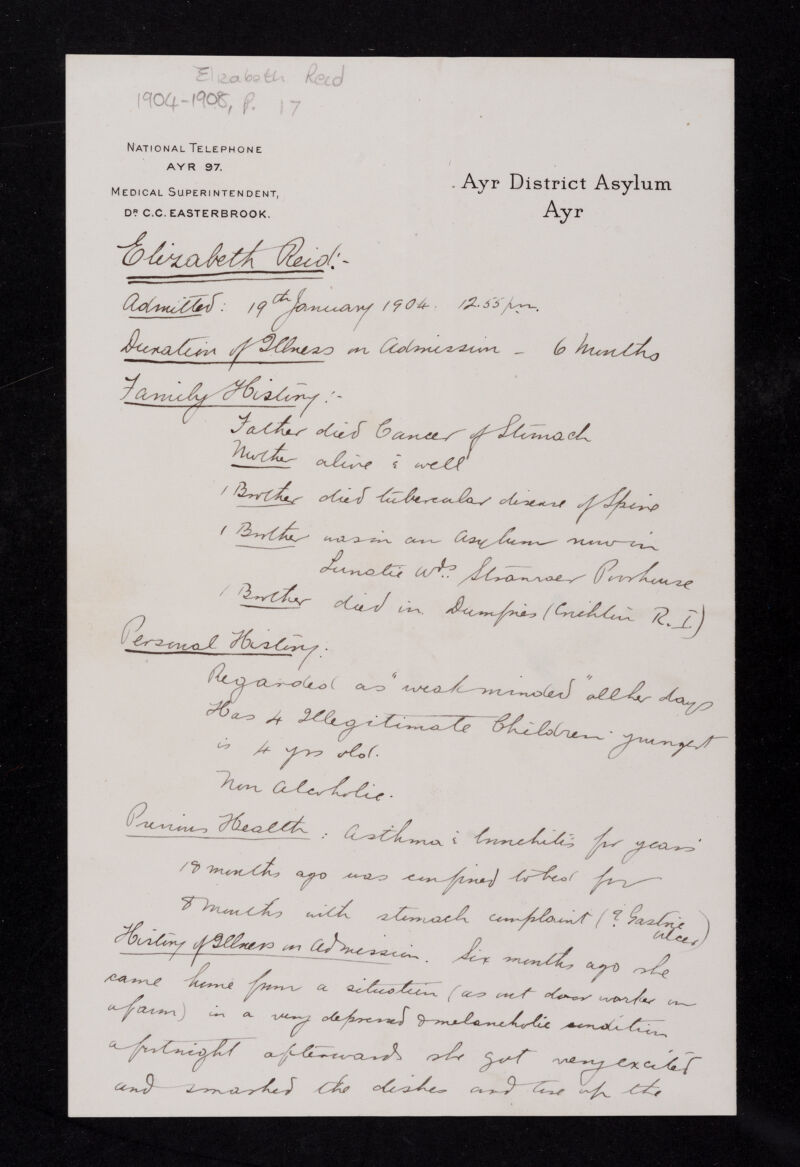 Elizabeth Reid
1904-1908, P. 17
NATIONAL TELEPHONE
AYR 97.
MEDICAL SUPERINTENDENT,
DR C.C. EASTERBROOK.
Ayr District Asylum
Ayr
Elizabeth Reid:-
Admitted: 19th January 1904. 12.55 p.m.
Duration of Illness on Admission - 6 Months
Family History:-
Father died Cancer of Stomach
Mother alive & well
1 Brother died tubercular disease of Spine
1 Brother was in an Asylum now in
Lunatic Wds. Stranraer Poorhouse
1 Brother died in Dumfries (Crichton R. I)
Personal History:
Regarded as "weak minded" all her days
Has 4 Illegitimate Children youngest
is 4 yrs old.
Non Alcoholic.
Previous Health: Asthma & bronchitis for years
18 months ago was confined to bed for
8 months with stomach complaint (? Gastric
ulcer)
History of Illness on Admission. Six months ago she
came home from a situation (as out door worker on
a farm) in a very depressed & melancholic condition
a fortnight afterwards she got very excited
and smashed the dishes and tore up the